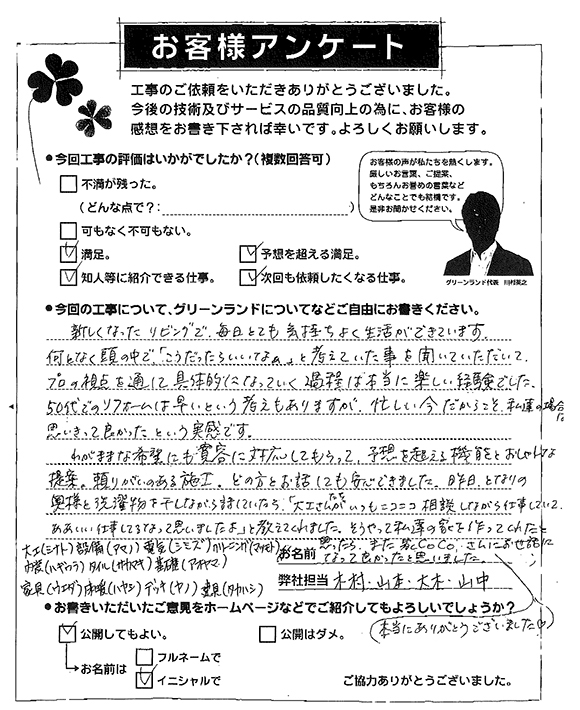 お客様アンケート
工事のご依頼をいただきありがとうございました。
今後の技術及びサービスの品質向上の為に、お客様の
感想をお書き下されば幸いです。よろしくお願いします。
●今回工事の評価はいかがでしたか?(複数回答可)
不満が残った。
(どんな点で?: )
可もなく不可もない。
満足。
予想を超える満足。
知人等に紹介できる仕事。
次回も依頼したくなる仕事。
お客様の声が私たちを熱くします。
厳しいお言葉、ご提案、
もちろんお誉めの言葉など
どんなことでも結構です。
是非お聞かせください。
グリーンランド代表 川村英之
●今回の工事について、グリーンランドについてなどご自由にお書きください。
新しくなったリビングで、毎日とても気持ちよく生活ができています。
何となく頭の中で「こうだったらいいなぁ」と考えていた事を聞いていただいて、
プロの視点を通して具体的になっていく過程は本当に楽しい経験でした。
50代でのリフォームは早いという考えもありますが、忙しい今だからこそ、私達の場合は
思いきって良かったという実感です。
わがままな希望にも寛容に対応してもらって、予想を超える機能とおしゃれな
提案。頼りがいのある施工。どの方とお話しても安心できました。昨日、となりの
奥様と洗濯物を干しながら話していたら、「大工さんたちがいつもニコニコ相談しながら仕事していて、
ああいい仕事してるなって思いましたよ」と教えてくれました。そうやって私達の家を作ってくれたと
思ったら、また CoCo。さんにお世話に
なって良かったと思いました。
大工(シオト) 設備(アマノ) 電気(シミズ) クリーニング(マツオ)
お名前
弊社担当 木村・山本・大木・山中
家具(ウエダ) 床暖(ハヤシ) デッキ(ヤノ) 建具(タカハシ)
●お書きいただいたご意見をホームページなどでご紹介してもよろしいでしょうか?
本当にありがとうございました♡
公開してもよい。
公開はダメ。
お名前は
フルネームで
イニシャルで
ご協力ありがとうございました。